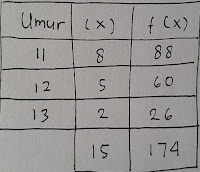 Umur (x) f(x)
11 8 88
12 5 60
13 2 26
15 174